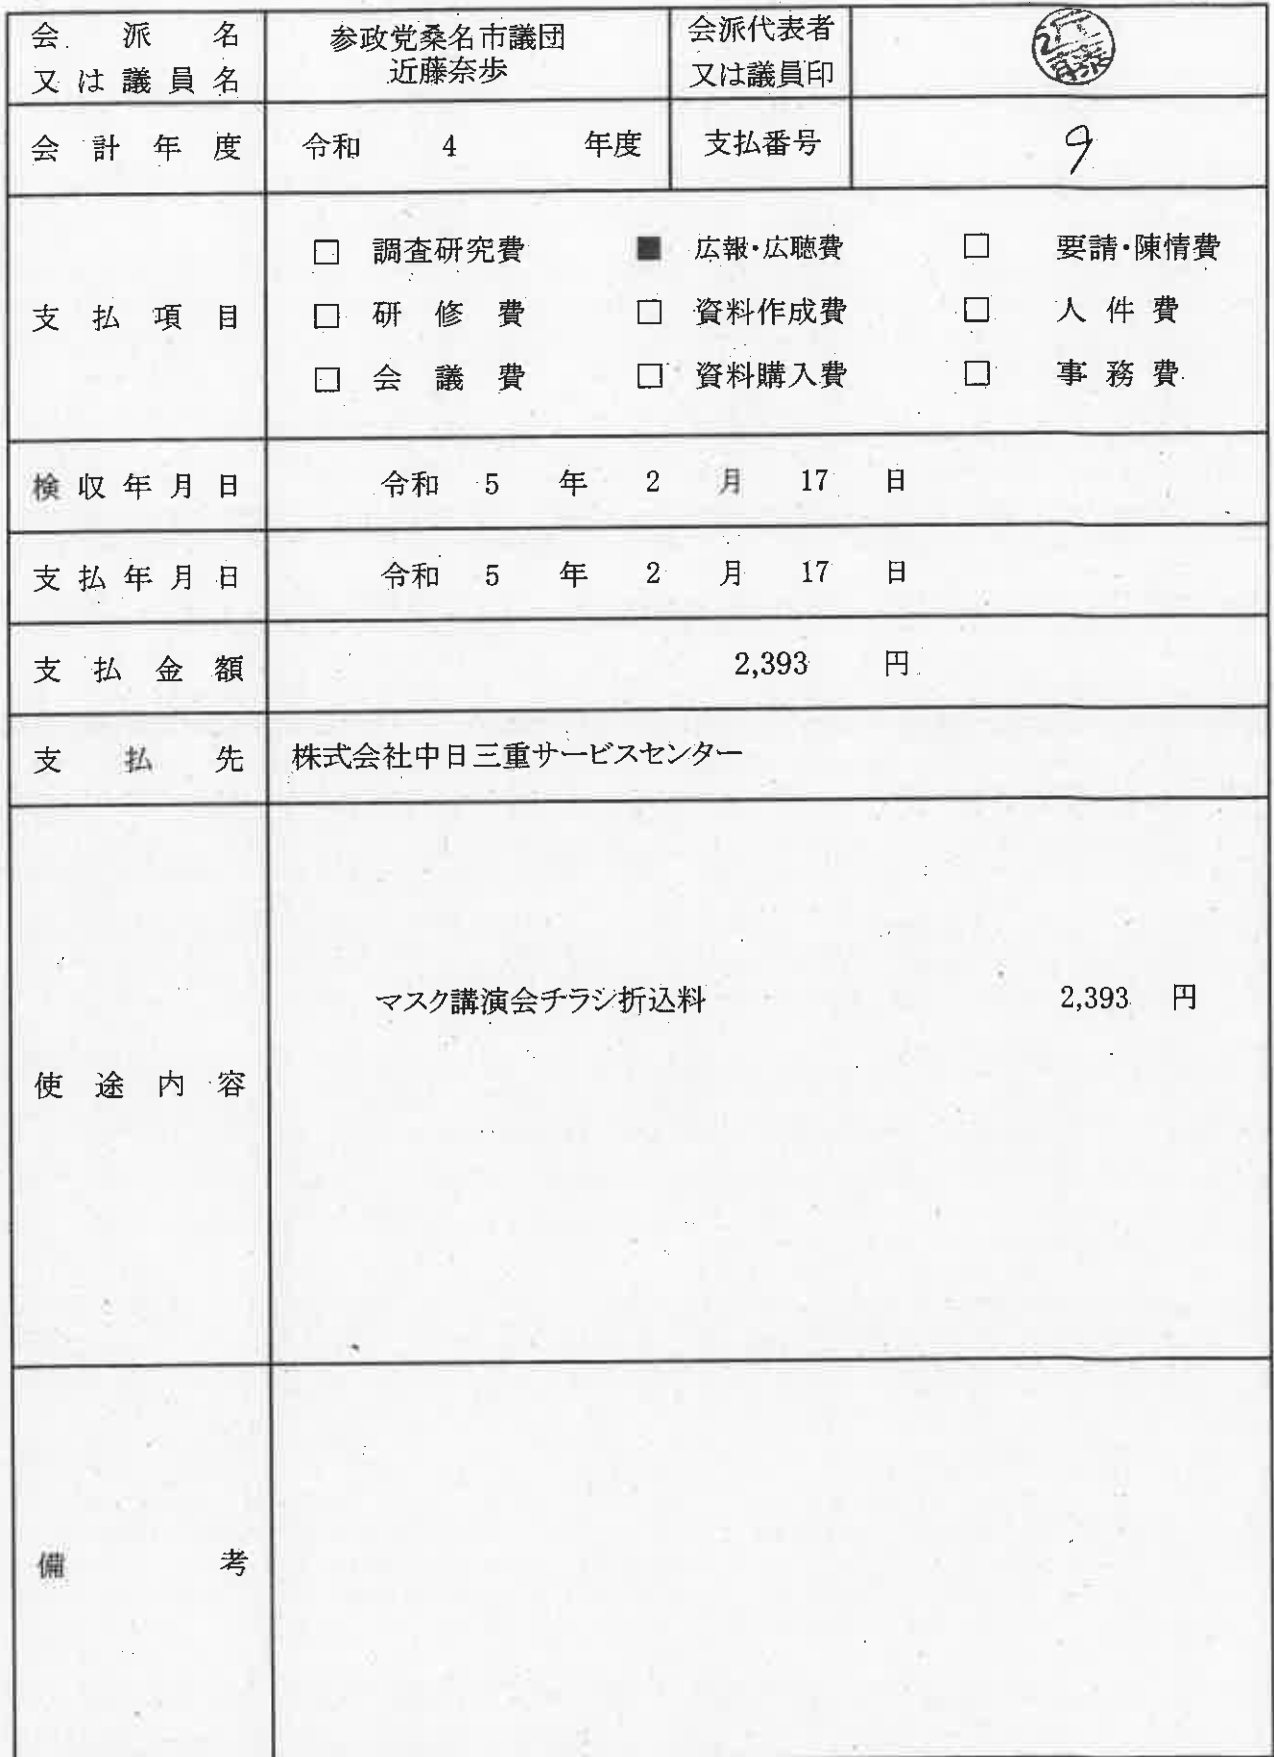 会派名 参政党桑名市議団 会派代表者
又は議員名 近藤奈歩 又は議員印
会計年度 令和 4 年度 支払番号 9
□ 調査研究費 ■ 広報・広聴費 □ 要請・陳情費
支払項目 □ 研修費 □ 資料作成費 □ 人件費
□ 会議費 □ 資料購入費 □ 事務費
検収年月日 令和 5 年 2 月 17 日
支払年月日 令和 5 年 2 月 17 日
支払金額 2,393 円
支払先 株式会社中日三重サービスセンター
マスク講演会チラシ折込料 2,393 円
使途内容
備考